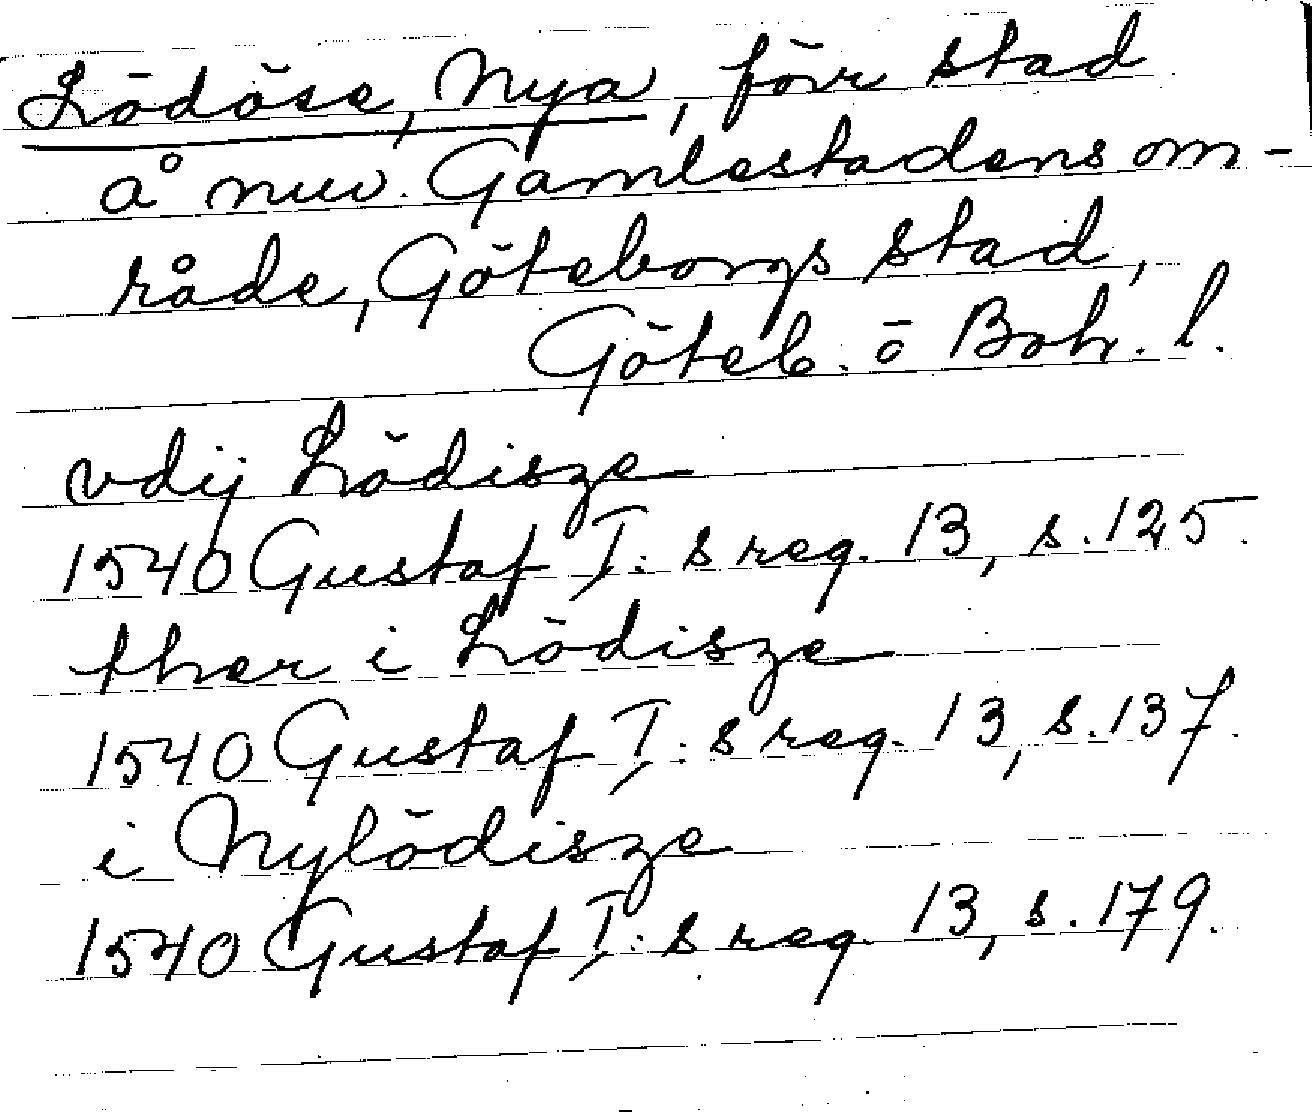 Lödöse, Nya, förr stad
å nuv. Gamlestadens om-
råde, Göteborgs stad,
Göteb. o Boh. l.
vdij Lödisze
1540 Gustaf I:s reg. 13, s. 125.
ther i Lödisze
1540 Gustaf I:s reg. 13, s. 137.
i Nylödisze
1540 Gustaf I:s reg. 13, s. 179.